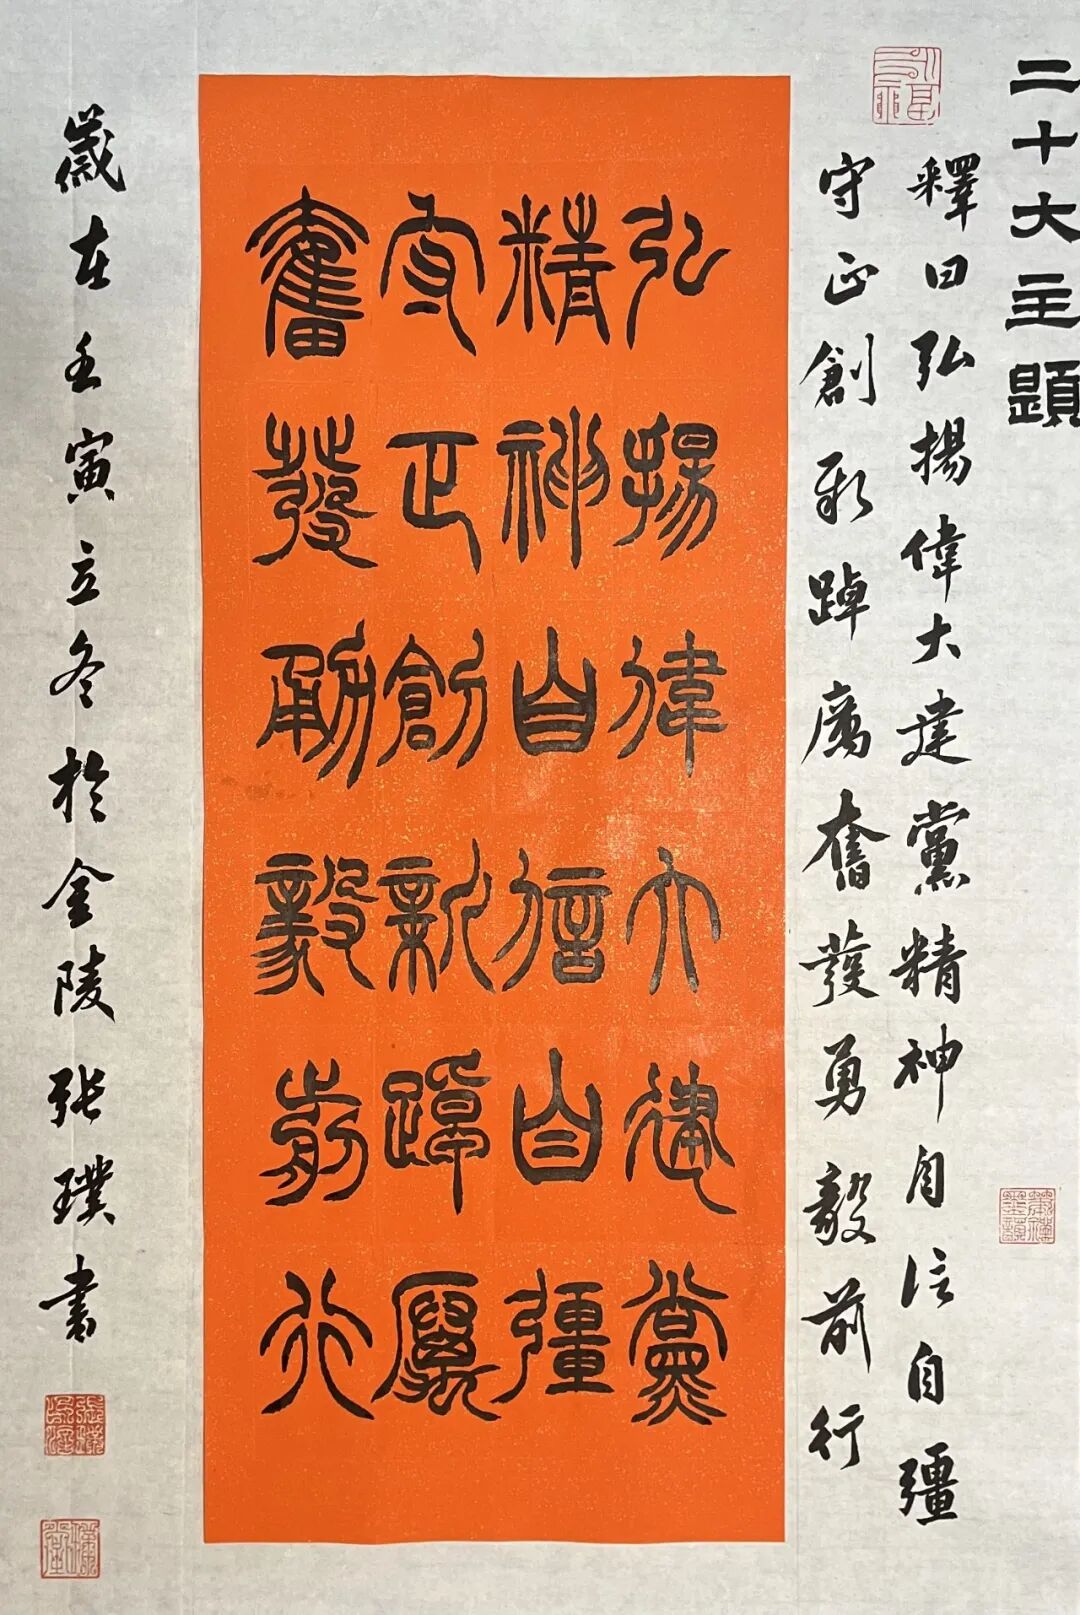 二十大主題
釋曰弘揚偉大建黨精神自信自彊
守正創新踔厲奮發勇毅前行
弘揚偉大建黨
精神自信自彊
守正創新踔厲
奮發勇毅前行
歲在壬寅立冬於金陵張璞書